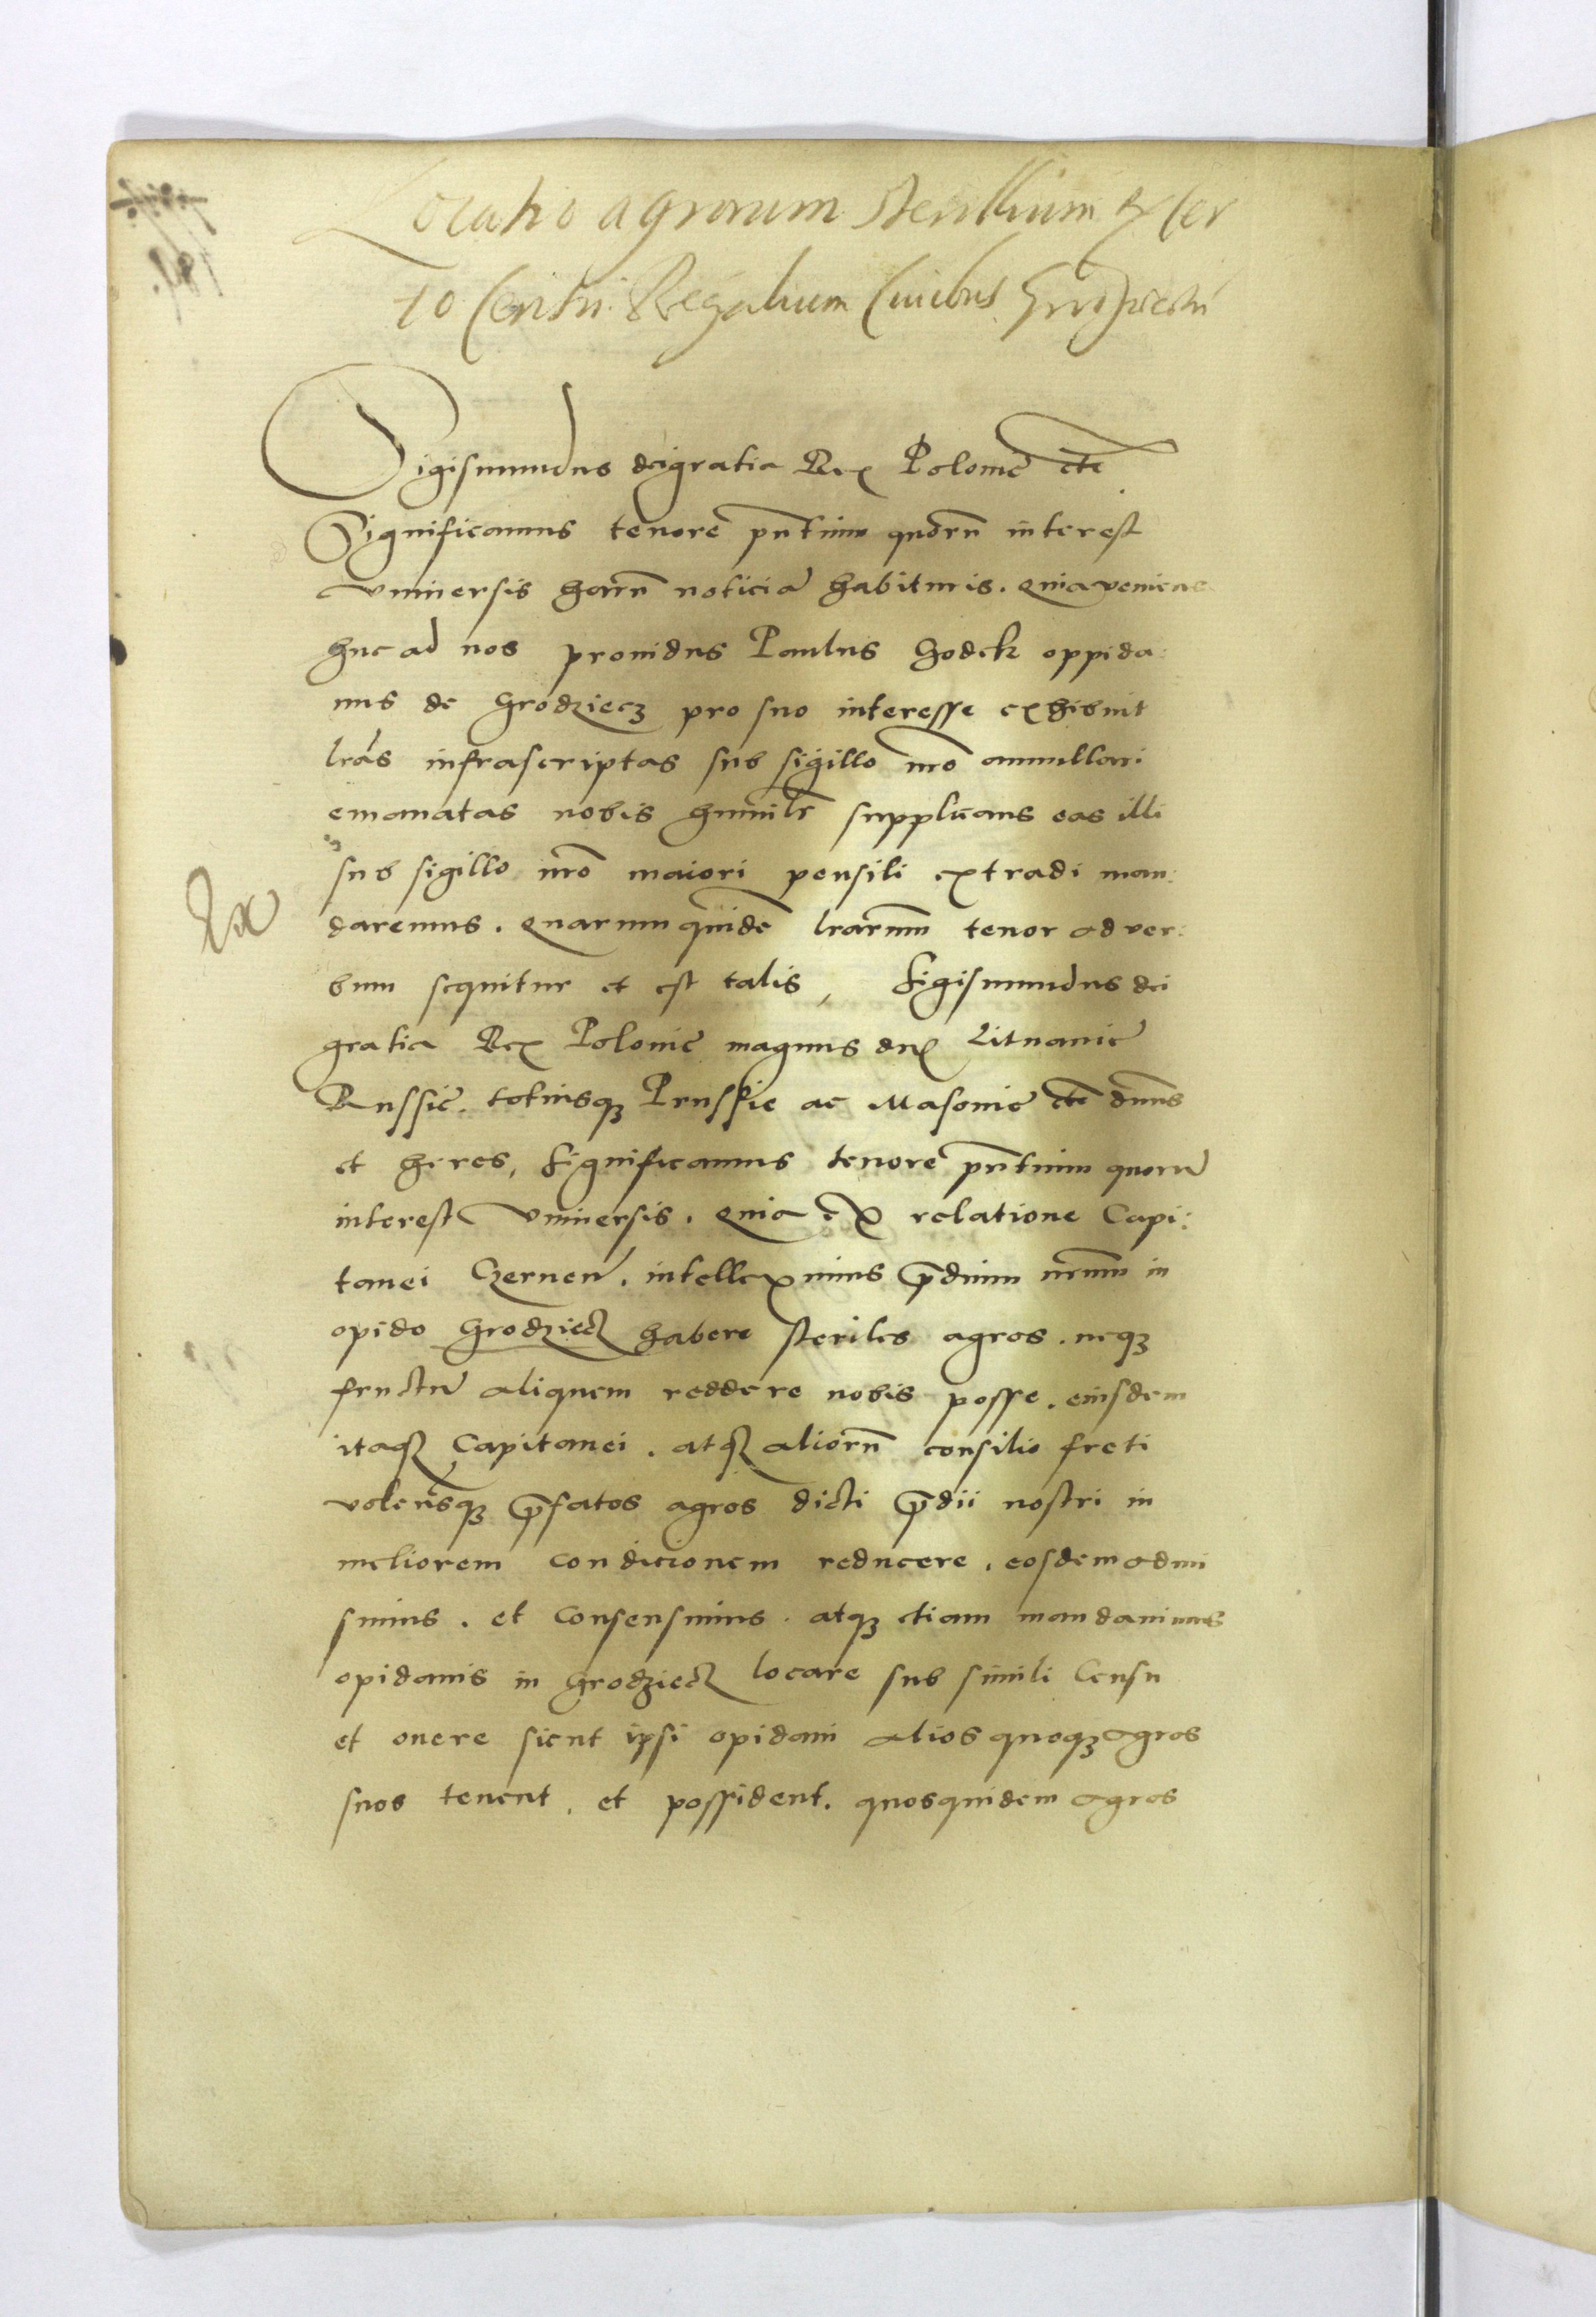 Locatio agrorum sterilium ex cer
to Censu Regalium Civibus Grodziecen
Sigismundus dei gratia Rex Polonie etc
Significamus tenore pñtium quorũ interest
Universis harũ noticiã habituris. Quia veniens
huc ad nos providus Paulus hodek oppida:
nus de Grodziecz pro suo interesse exhibuit
lrãs infrascriptas sub sigillo nrõ annullari
emanatas nobis humilr̃ supplicans eas illi
sub sigillo nrõ maiori pensili extradi man:
daremus. Quarum quidẽ lrarum tenor ad ver:
bum sequitur et est talis, Sigismundus dei
gratia Rex Polonie magnus dux Lituanie
Russie. totiusq₃ Prussie ac Masovie etc dñus
et heres, Significamus tenore pñtium quorũ
interest Universis. Quia ex relatione Capi:
tanei Czernen̄. intelleximus p̃dium nr̃um in
opido Grodziecz habere steriles agros. neq₃
fructũ aliquem reddere nobis posse. eiusdem
itaq₃ Capitanei. atq₃ aliorũ consilio freti
volen̄sq₃ p̃fatos agros dicti p̃dii nostri in
meliorem condicionem reducere. eosdem admi
simus. et Consensimus. atq₃ etiam mandavimus
opidanis in Grodziecz locare sub simili Censu
et onere sicut ipsi opidani alios quoq₃ agros
suos tenent, et possident. quosquidem agros